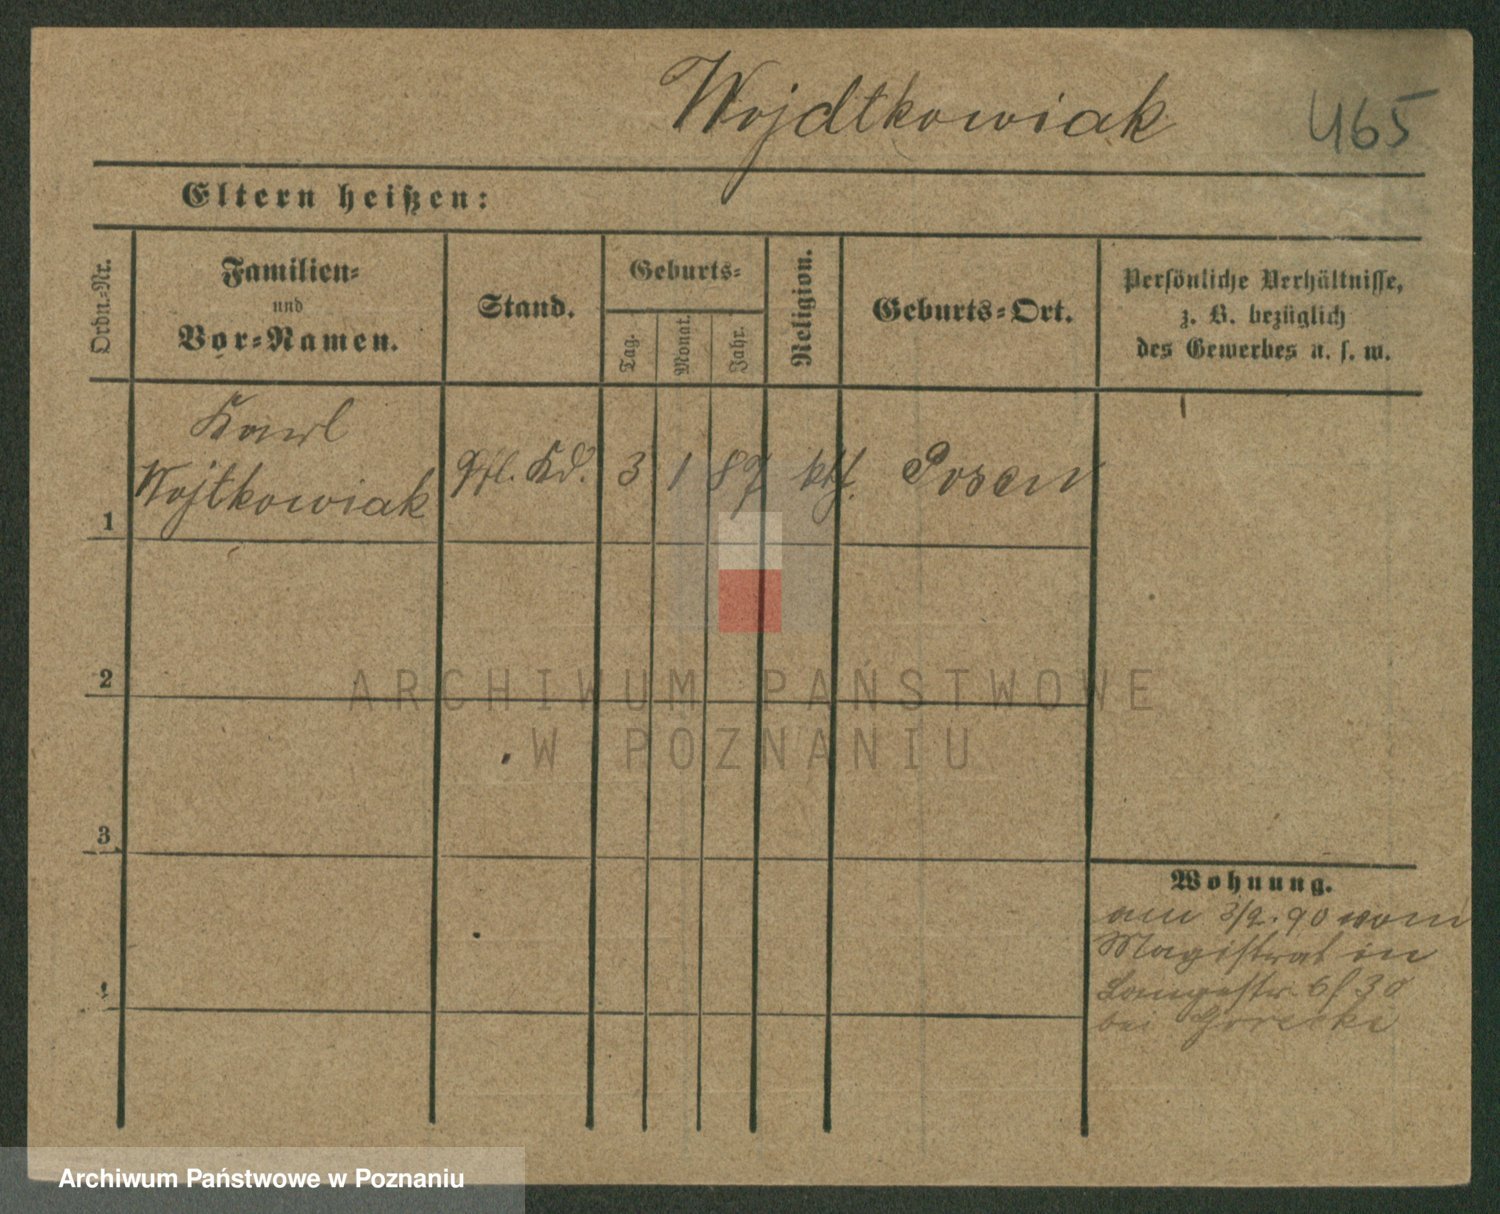 Wojdtkowiak
465
Eltern heißen:
Ordn.=Nr.
Familien=
und
Vor=Namen.
Stand.
Geburts=
Tag.
Monat.
Jahr.
Religion.
Geburts=Ort.
Persönliche Verhältnisse,
z. B. bezüglich
des Gewerbes u. s. w.
Karl
Wojtkowiak
Pfl. Kd. 3 1 87 kth. Posen
1
2
3
4
ARCHIWUM PAŃSTWOWE
W POZNANIU
Wohnung.
am 3/2. 90 vom
Magistrat in
Langestr.
bei Gorecki
Archiwum Państwowe w Poznaniu